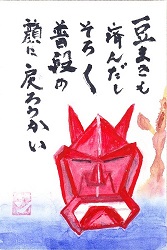 豆まきも
済んだし
そろ〳〵
普段の
顔に戻ろうかい